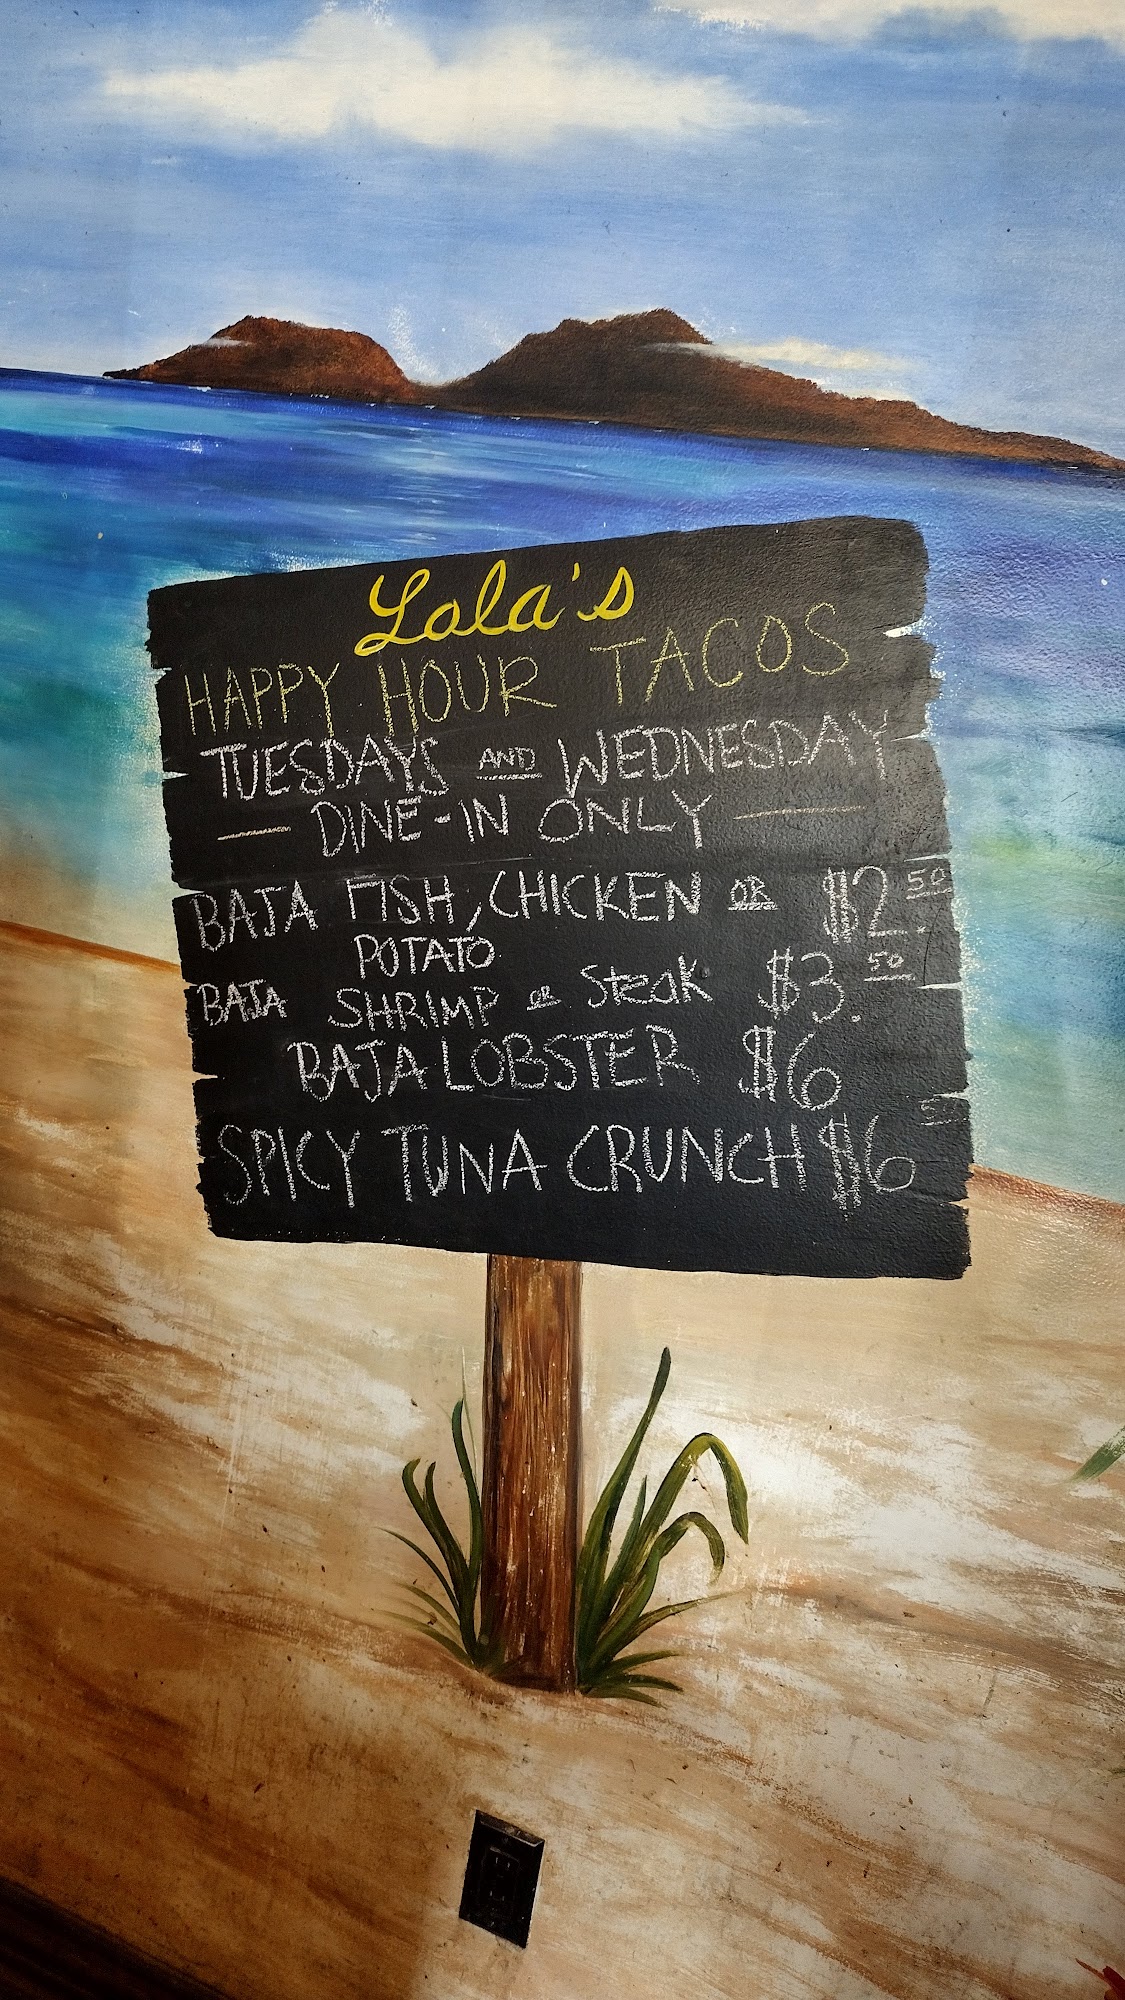 Lola's
HAPPY HOUR TACOS
TUESDAYS AND WEDNESDAY
— DINE-IN ONLY —
BAJA FISH, CHICKEN OR $2.50
POTATO
BAJA SHRIMP OR Steak $3.50
BAJA LOBSTER $6
SPICY TUNA CRUNCH $6